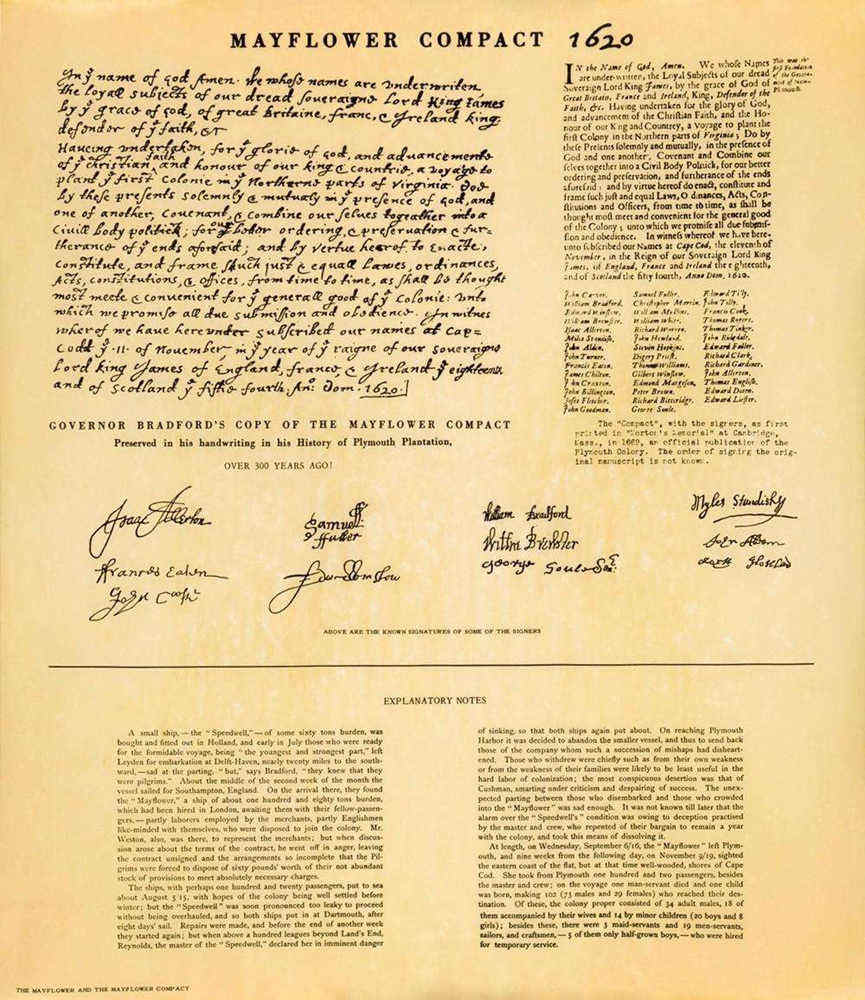 MAYFLOWER COMPACT 1620
In yͤ name of god Amen. We whose names are underwriten,
the loyall subjects of our dread soueraigne Lord King James
by yͤ grace of god, of great britaine, franc, & Ireland king,
defendor of yͤ faith, &c
Haueing undertaken, for yͤ glorie of god, and aduancemente
of yͤ christian faith, and honour of our king & countrie, a voyage to
plant yͤ first Colonie in yͤ Northerne parts of Virginia. Doe
by these presents solemnly & mutualy in yͤ presence of god, and
one of another, Couenant, & Combine our selues togeather into a
Ciuill body politick; for our better ordering, & preseruation & fur=
therance of yͤ ends aforesaid; and by vertue hearof to Enacte,
Constitute, and frame shuch just & equall Lawes, ordinances,
Acts, constitutions, & offices, from time to time, as shall be thought
most meete & convenient for yͤ generall good of yͤ Colonie: Unto
which we promise all due submission and obedience. In witnes
wherof we haue hereunder subscribed our names at Cap=
Codd yͤ .11. of Nouember in yͤ year of yͤ raigne of our soueraigne
Lord king James of England, france, & Ireland yͤ eighteenth
and of scotland yͤ fiftie fourth. Ano: Dom. 1620.
GOVERNOR BRADFORD'S COPY OF THE MAYFLOWER COMPACT
Preserved in his handwriting in his History of Plymouth Plantation,
OVER 300 YEARS AGO!
IN the Name of God, Amen. We whose Names
are under-written, the Loyal Subjects of our dread
Soveraign Lord King James, by the grace of God of
Great Britain, France and Ireland, King, Defender of the
Faith, &c. Having undertaken for the glory of God,
and advancement of the Christian Faith, and the Ho-
nour of our King and Countrey, a Voyage to plant the
first Colony in the Northern parts of Virginia; Do by
these Presents solemnly and mutually, in the presence of
God and one another, Covenant and Combine our
selves together into a Civil Body Politick, for our better
ordering and preservation, and furtherance of the ends
aforesaid: and by virtue hereof do enact, constitute and
frame such just and equal Laws, Ordinances, Acts, Con-
stitutions and Officers, from time to time, as shall be
thought most meet and convenient for the general good
of the Colony; unto which we promise all due submis-
sion and obedience. In witness whereof we have here-
unto subscribed our Names at Cape Cod, the eleventh of
November, in the Reign of our Soveraign Lord King
James, of England, France and Ireland the eighteenth,
and of Scotland the fifty fourth, Anno Dom. 1620.
John Carver. Samuel Fuller. Edward Tilly.
William Bradford. Christopher Martin. John Tilly.
Edward Winslow. William Mullins. Francis Cook.
William Brewster. William White. Thomas Rogers.
Isaac Allerton. Richard Warren. Thomas Tinker.
Miles Standish. John Howland. John Ridgdale.
John Alden. Steven Hopkins. Edward Fuller.
John Turner. Digery Priest. Richard Clark.
Francis Eaton. Thomas Williams. Richard Gardiner.
James Chilton. Gilbert Winslow. John Allerton.
John Craxton. Edmond Margeson. Thomas English.
John Billington. Peter Brown. Edward Doten.
Joses Fletcher. Richard Bitteridge. Edward Liester.
John Goodman. George Soule.
The "Compact", with the signers, as first
printed in "Morton's Memorial" at Cambridge,
Mass., in 1669, an official publication of the
Plymouth Colony. The order of signing the orig-
inal manuscript is not known.
Isaac Allerton
Samuell Fuller
William Bradford
Myles Standish
Willm Brewster
Francis Eaton
George Soule
John Cooke
ABOVE ARE THE KNOWN SIGNATURES OF SOME OF THE SIGNERS
EXPLANATORY NOTES
A small ship,—the "Speedwell,"—of some sixty tons burden, was
bought and fitted out in Holland, and early in July those who were ready
for the formidable voyage, being "the youngest and strongest part," left
Leyden for embarkation at Delft-Haven, nearly twenty miles to the south-
ward,—sad at the parting, "but," says Bradford, "they knew that they
were pilgrims." About the middle of the second week of the month the
vessel sailed for Southampton, England. On the arrival there, they found
the "Mayflower," a ship of about one hundred and eighty tons burden,
which had been hired in London, awaiting them with their fellow-passen-
gers,—partly laborers employed by the merchants, partly Englishmen
like-minded with themselves, who were disposed to join the colony. Mr.
Weston, also, was there, to represent the merchants; but when discus-
sion arose about the terms of the contract, he went off in anger, leaving
the contract unsigned and the arrangements so incomplete that the Pil-
grims were forced to dispose of sixty pounds' worth of their not abundant
stock of provisions to meet absolutely necessary charges.
The ships, with perhaps one hundred and twenty passengers, put to sea
about August 5/15, with hopes of the colony being well settled before
winter; but the "Speedwell" was soon pronounced too leaky to proceed
without being overhauled, and so both ships put in at Dartmouth, after
eight days' sail. Repairs were made, and before the end of another week
they started again; but when above a hundred leagues beyond Land's End,
Reynolds, the master of the "Speedwell," declared her in imminent danger
of sinking, so that both ships again put about. On reaching Plymouth
Harbor it was decided to abandon the smaller vessel, and thus to send back
those of the company whom such a succession of mishaps had disheart-
ened. Those who withdrew were chiefly such as from their own weakness
or from the weakness of their families were likely to be least useful in the
hard labor of colonization; the most conspicuous desertion was that of
Cushman, smarting under criticism and despairing of success. The unex-
pected parting between those who disembarked and those who crowded
into the "Mayflower" was sad enough. It was not known till later that the
alarm over the "Speedwell's" condition was owing to deception practised
by the master and crew, who repented of their bargain to remain a year
with the colony, and took this means of dissolving it.
At length, on Wednesday, September 6/16, the "Mayflower" left Plym-
outh, and nine weeks from the following day, on November 9/19, sighted
the eastern coast of the flat, but at that time well-wooded, shores of Cape
Cod. She took from Plymouth one hundred and two passengers, besides
the master and crew; on the voyage one man-servant died and one child
was born, making 102 (73 males and 29 females) who reached their des-
tination. Of these, the colony proper consisted of 34 adult males, 18 of
them accompanied by their wives and 14 by minor children (20 boys and 8
girls); besides these, there were 3 maid-servants and 19 men-servants,
sailors, and craftsmen,—5 of them only half-grown boys,—who were hired
for temporary service.
THE MAYFLOWER AND THE MAYFLOWER COMPACT